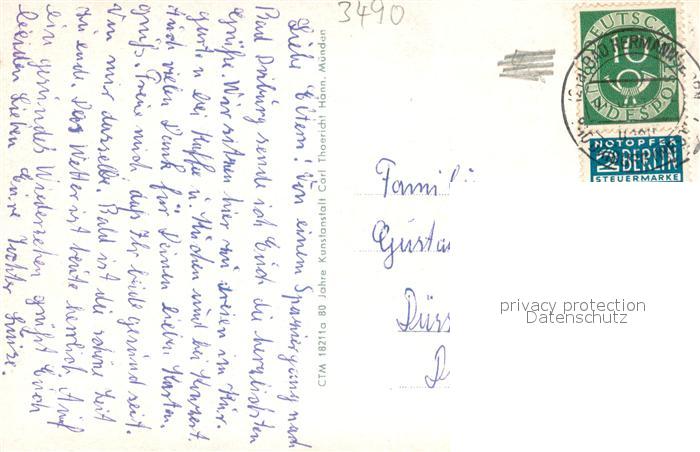 3490
Liebe Eltern! Von einem Spaziergang nach
Bad Driburg sende ich Euch die herzlichsten
Grüße. Wir sitzen hier zu dreien im Kur-
garten bei Kaffee u. Kuchen und bei Konzert.
Auch vielen Dank für Deinen lieben Karten-
gruß. Freue mich, daß Ihr beide gesund seit.
Von mir dasselbe. Bald ist die schöne Zeit
zu end. Das Wetter ist heute herrlich. Auf
ein gesundes Wiedersehen grüßt Euch
beiden Lieben Eure Tochter
CTM 18211a 80 Jahre Kunstanstalt Carl Thoericht Hann. Münden
DEUTSCHE
10
BUNDESPOST
BAD HERMANNS
NOTOPFER
2 BERLIN
STEUERMARKE
Famili
Gusta
Düss
privacy protection
Datenschutz